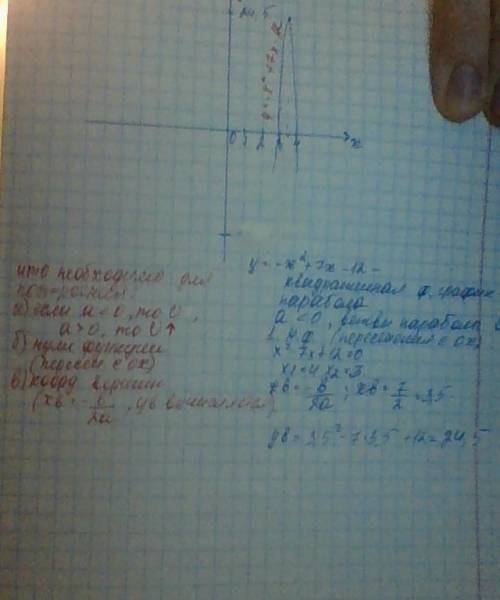 24,5
y=-x²+7x-12
0 1 2 3 4 x
что необходимо для
а) если a<0, то ∩,
a>0, то U↑
б) нули функции
(пересеч с ox)
в) коорд вершин
(xв=-b/2a, yв
y=-x²+7x-12-
квадратичная ф. график
парабола
a<0, ветви параболы
(пересечения с ox)
x²-7x+12=0
x1=4, x2=3
xв=-b/2a; xв=7/2=3,5
yв=3,5²-7·3,5+12=24,5